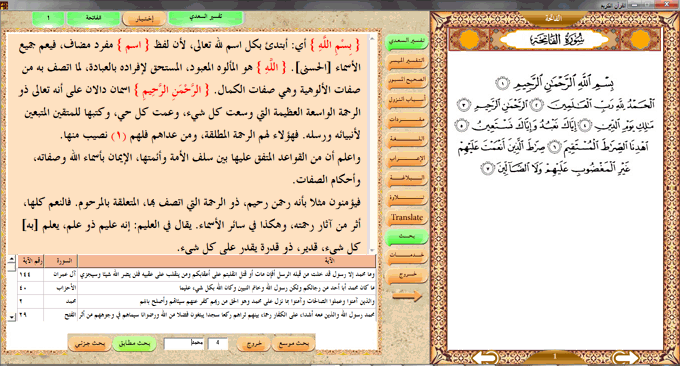 القرآن الكريم
الفاتحة
سُورَةُ الفَاتِحَةِ
بِسْمِ اللَّهِ الرَّحْمَٰنِ الرَّحِيمِ ١
الْحَمْدُ لِلَّهِ رَبِّ الْعَالَمِينَ ٢ الرَّحْمَٰنِ الرَّحِيمِ ٣
مَالِكِ يَوْمِ الدِّينِ ٤ إِيَّاكَ نَعْبُدُ وَإِيَّاكَ نَسْتَعِينُ ٥
اهْدِنَا الصِّرَاطَ الْمُسْتَقِيمَ ٦ صِرَاطَ الَّذِينَ أَنْعَمْتَ عَلَيْهِمْ
غَيْرِ الْمَغْضُوبِ عَلَيْهِمْ وَلَا الضَّالِّينَ ٧
1
تفسير السعدي
التفسير الميسر
الصحيح المسبور
أسباب النزول
مفردات
اللغة
الإعراب
البلاغة
تلاوة
Translate
بحث
خدمات
خروج
تفسير السعدي
إختيار
الفاتحة
١
{ بِسْمِ اللَّهِ } أي: أبتدئ بكل اسم لله تعالى، لأن لفظ { اسم } مفرد مضاف، فيعم جميع
الأسماء [الحسنى]. { اللَّهِ } هو المألوه المعبود، المستحق لإفراده بالعبادة، لما اتصف به من
صفات الألوهية وهي صفات الكمال. { الرَّحْمَنِ الرَّحِيمِ } اسمان دالان على أنه تعالى ذو
الرحمة الواسعة العظيمة التي وسعت كل شيء، وعمت كل حي، وكتبها للمتقين المتبعين
لأنبيائه ورسله. فهؤلاء لهم الرحمة المطلقة، ومن عداهم فلهم (١) نصيب منها.
واعلم أن من القواعد المتفق عليها بين سلف الأمة وأئمتها، الإيمان بأسماء الله وصفاته،
وأحكام الصفات.
فيؤمنون مثلا بأنه رحمن رحيم، ذو الرحمة التي اتصف بها، المتعلقة بالمرحوم. فالنعم كلها،
أثر من آثار رحمته، وهكذا في سائر الأسماء. يقال في العليم: إنه عليم ذو علم، يعلم [به]
كل شيء، قدير، ذو قدرة يقدر على كل شيء.
الآية السورة رقم الآية
وما محمد إلا رسول قد خلت من قبله الرسل أفإن مات أو قتل انقلبتم على أعقابكم ومن ينقلب على عقبيه فلن يضر الله شيئا وسيجزي آل عمران ١٤٤
ما كان محمد أبا أحد من رجالكم ولكن رسول الله وخاتم النبيين وكان الله بكل شيء عليما الأحزاب ٤٠
والذين آمنوا وعملوا الصالحات وآمنوا بما نزل على محمد وهو الحق من ربهم كفر عنهم سيئاتهم وأصلح بالهم محمد ٢
محمد رسول الله والذين معه أشداء على الكفار رحماء بينهم تراهم ركعا سجدا يبتغون فضلا من الله ورضوانا سيماهم في وجوههم من أثر الفتح ٢٩
بحث موسع
خروج
4
محمد
بحث مطابق
بحث جزئي